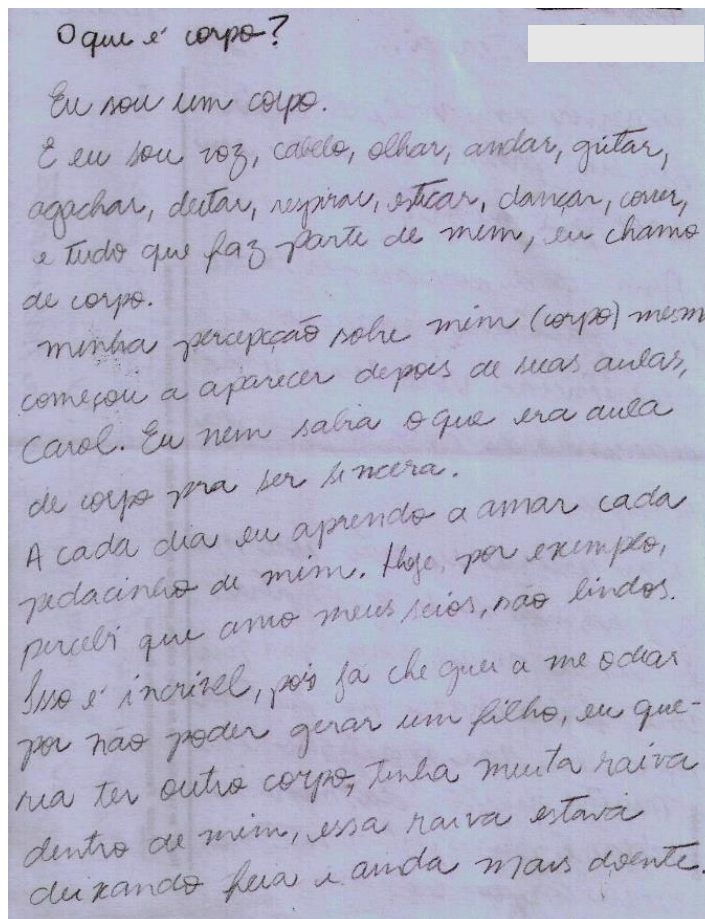 O que é corpo?
Eu sou um corpo.
E eu sou voz, cabelo, olhar, andar, gritar,
agachar, deitar, respirar, esticar, dançar, correr,
e tudo que faz parte de mim, eu chamo
de corpo.
minha percepção sobre mim (corpo) mesm
começou a aparecer depois de suas aulas,
Carol. Eu nem sabia o que era aula
de corpo pra ser sincera.
A cada dia eu aprendo a amar cada
pedacinho de mim. Hoje, por exemplo,
percebi que amo meus seios, são lindos.
Isso é incrível, pois já cheguei a me odiar
por não poder gerar um filho, eu que-
ria ter outro corpo, tinha muita raiva
dentro de mim, essa raiva estava
deixando feia e ainda mais doente.